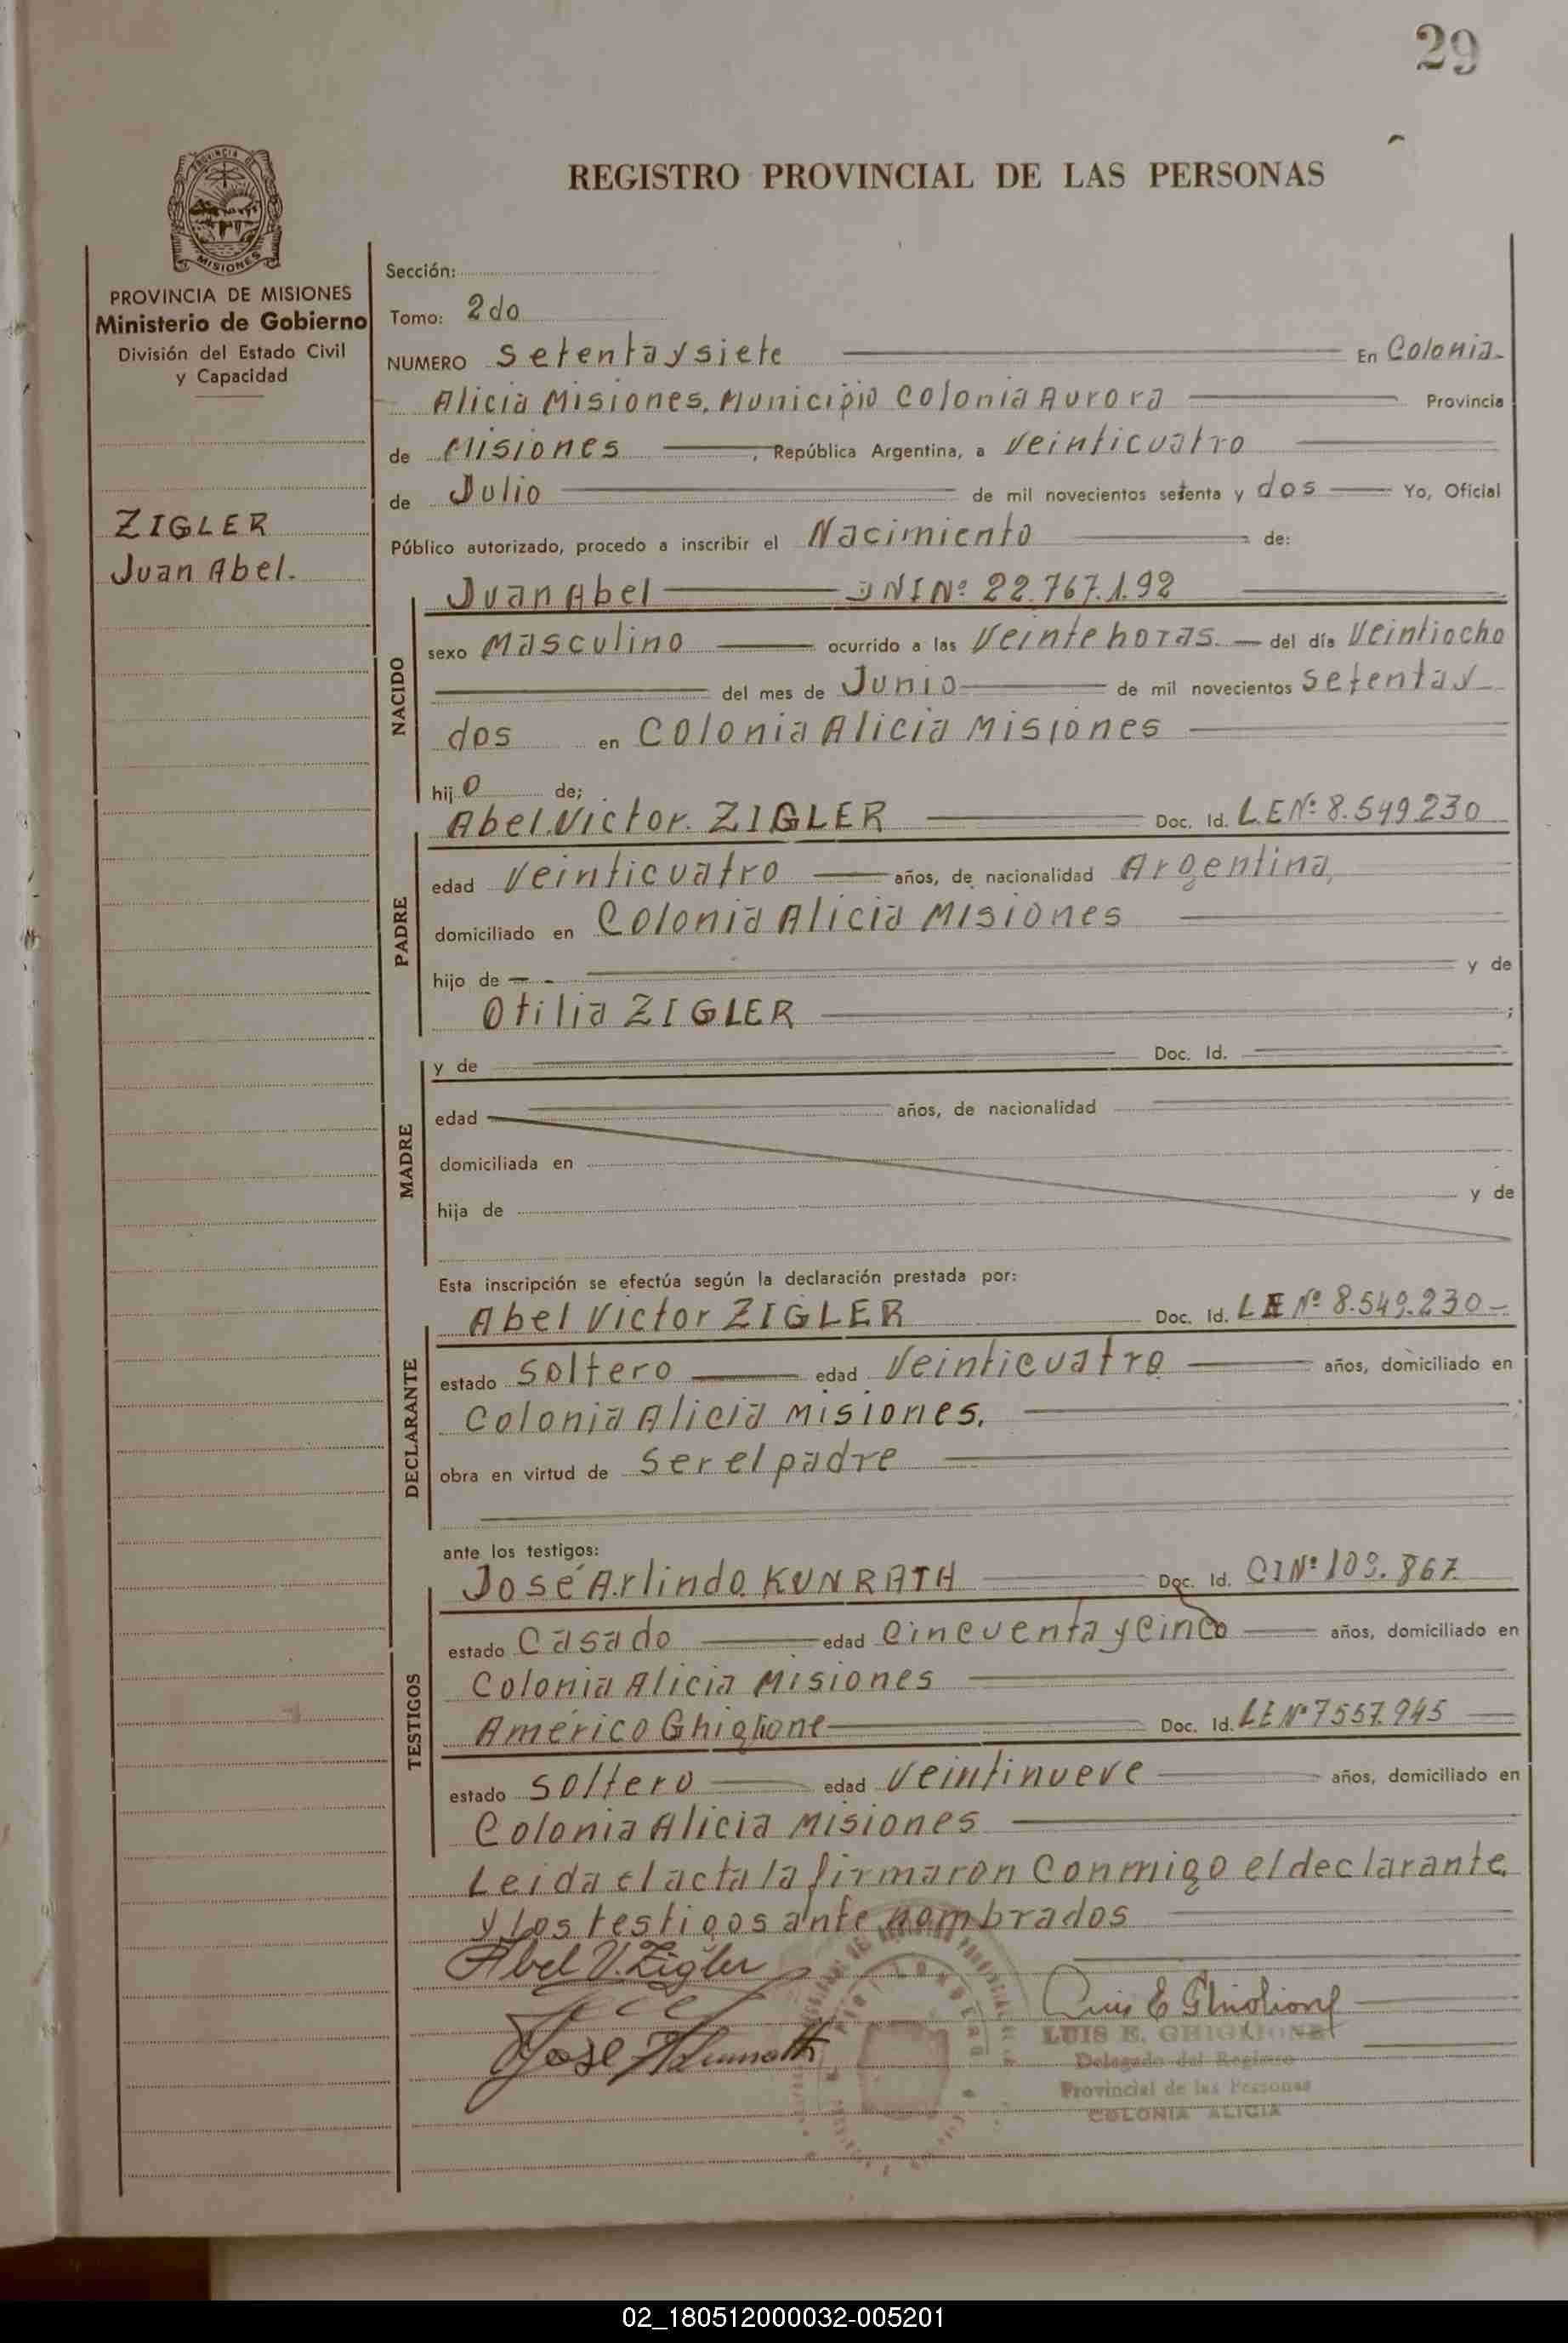 29
REGISTRO PROVINCIAL DE LAS PERSONAS
PROVINCIA DE
MISIONES
PROVINCIA DE MISIONES
Ministerio de Gobierno
División del Estado Civil
y Capacidad
ZIGLER
Juan Abel.
Sección:
Tomo: 2do
NUMERO Setenta y siete En Colonia
Alicia Misiones, Municipio Colonia Aurora Provincia
de Misiones, República Argentina, a Veinticuatro
de Julio de mil novecientos setenta y dos Yo, Oficial
Público autorizado, procedo a inscribir el Nacimiento de:
Juan Abel DNI Nº 22.767.192
NACIDO
sexo Masculino ocurrido a las Veinte horas. del día Veintiocho
del mes de Junio de mil novecientos setenta y
dos en Colonia Alicia Misiones
hijo de;
Abel Victor ZIGLER Doc. Id. LE Nº 8.549.230
PADRE
edad Veinticuatro años, de nacionalidad Argentina,
domiciliado en Colonia Alicia Misiones
hijo de y de
Otilia ZIGLER ;
MADRE
y de Doc. Id.
edad años, de nacionalidad
domiciliada en
hija de y de
Esta inscripción se efectúa según la declaración prestada por:
Abel Victor ZIGLER Doc. Id. LE Nº 8.549.230
DECLARANTE
estado Soltero edad Veinticuatro años, domiciliado en
Colonia Alicia Misiones.
obra en virtud de Ser el padre
ante los testigos:
José Arlindo KUNRATH Doc. Id. CI Nº 109.867
TESTIGOS
estado Casado edad Cincuenta y Cinco años, domiciliado en
Colonia Alicia Misiones
Américo Ghiglione Doc. Id. LE Nº 7557.945
estado Soltero edad Veintinueve años, domiciliado en
Colonia Alicia Misiones
Leida el acta la firmaron Conmigo el declarante
y los testigos ante nombrados
Abel V. Zigler
Luis E Ghiglione
José A Kunrath
LUIS E. GHIGLIONE
Delegado del Registro
Provincial de las Personas
COLONIA ALICIA
02_180512000032-005201